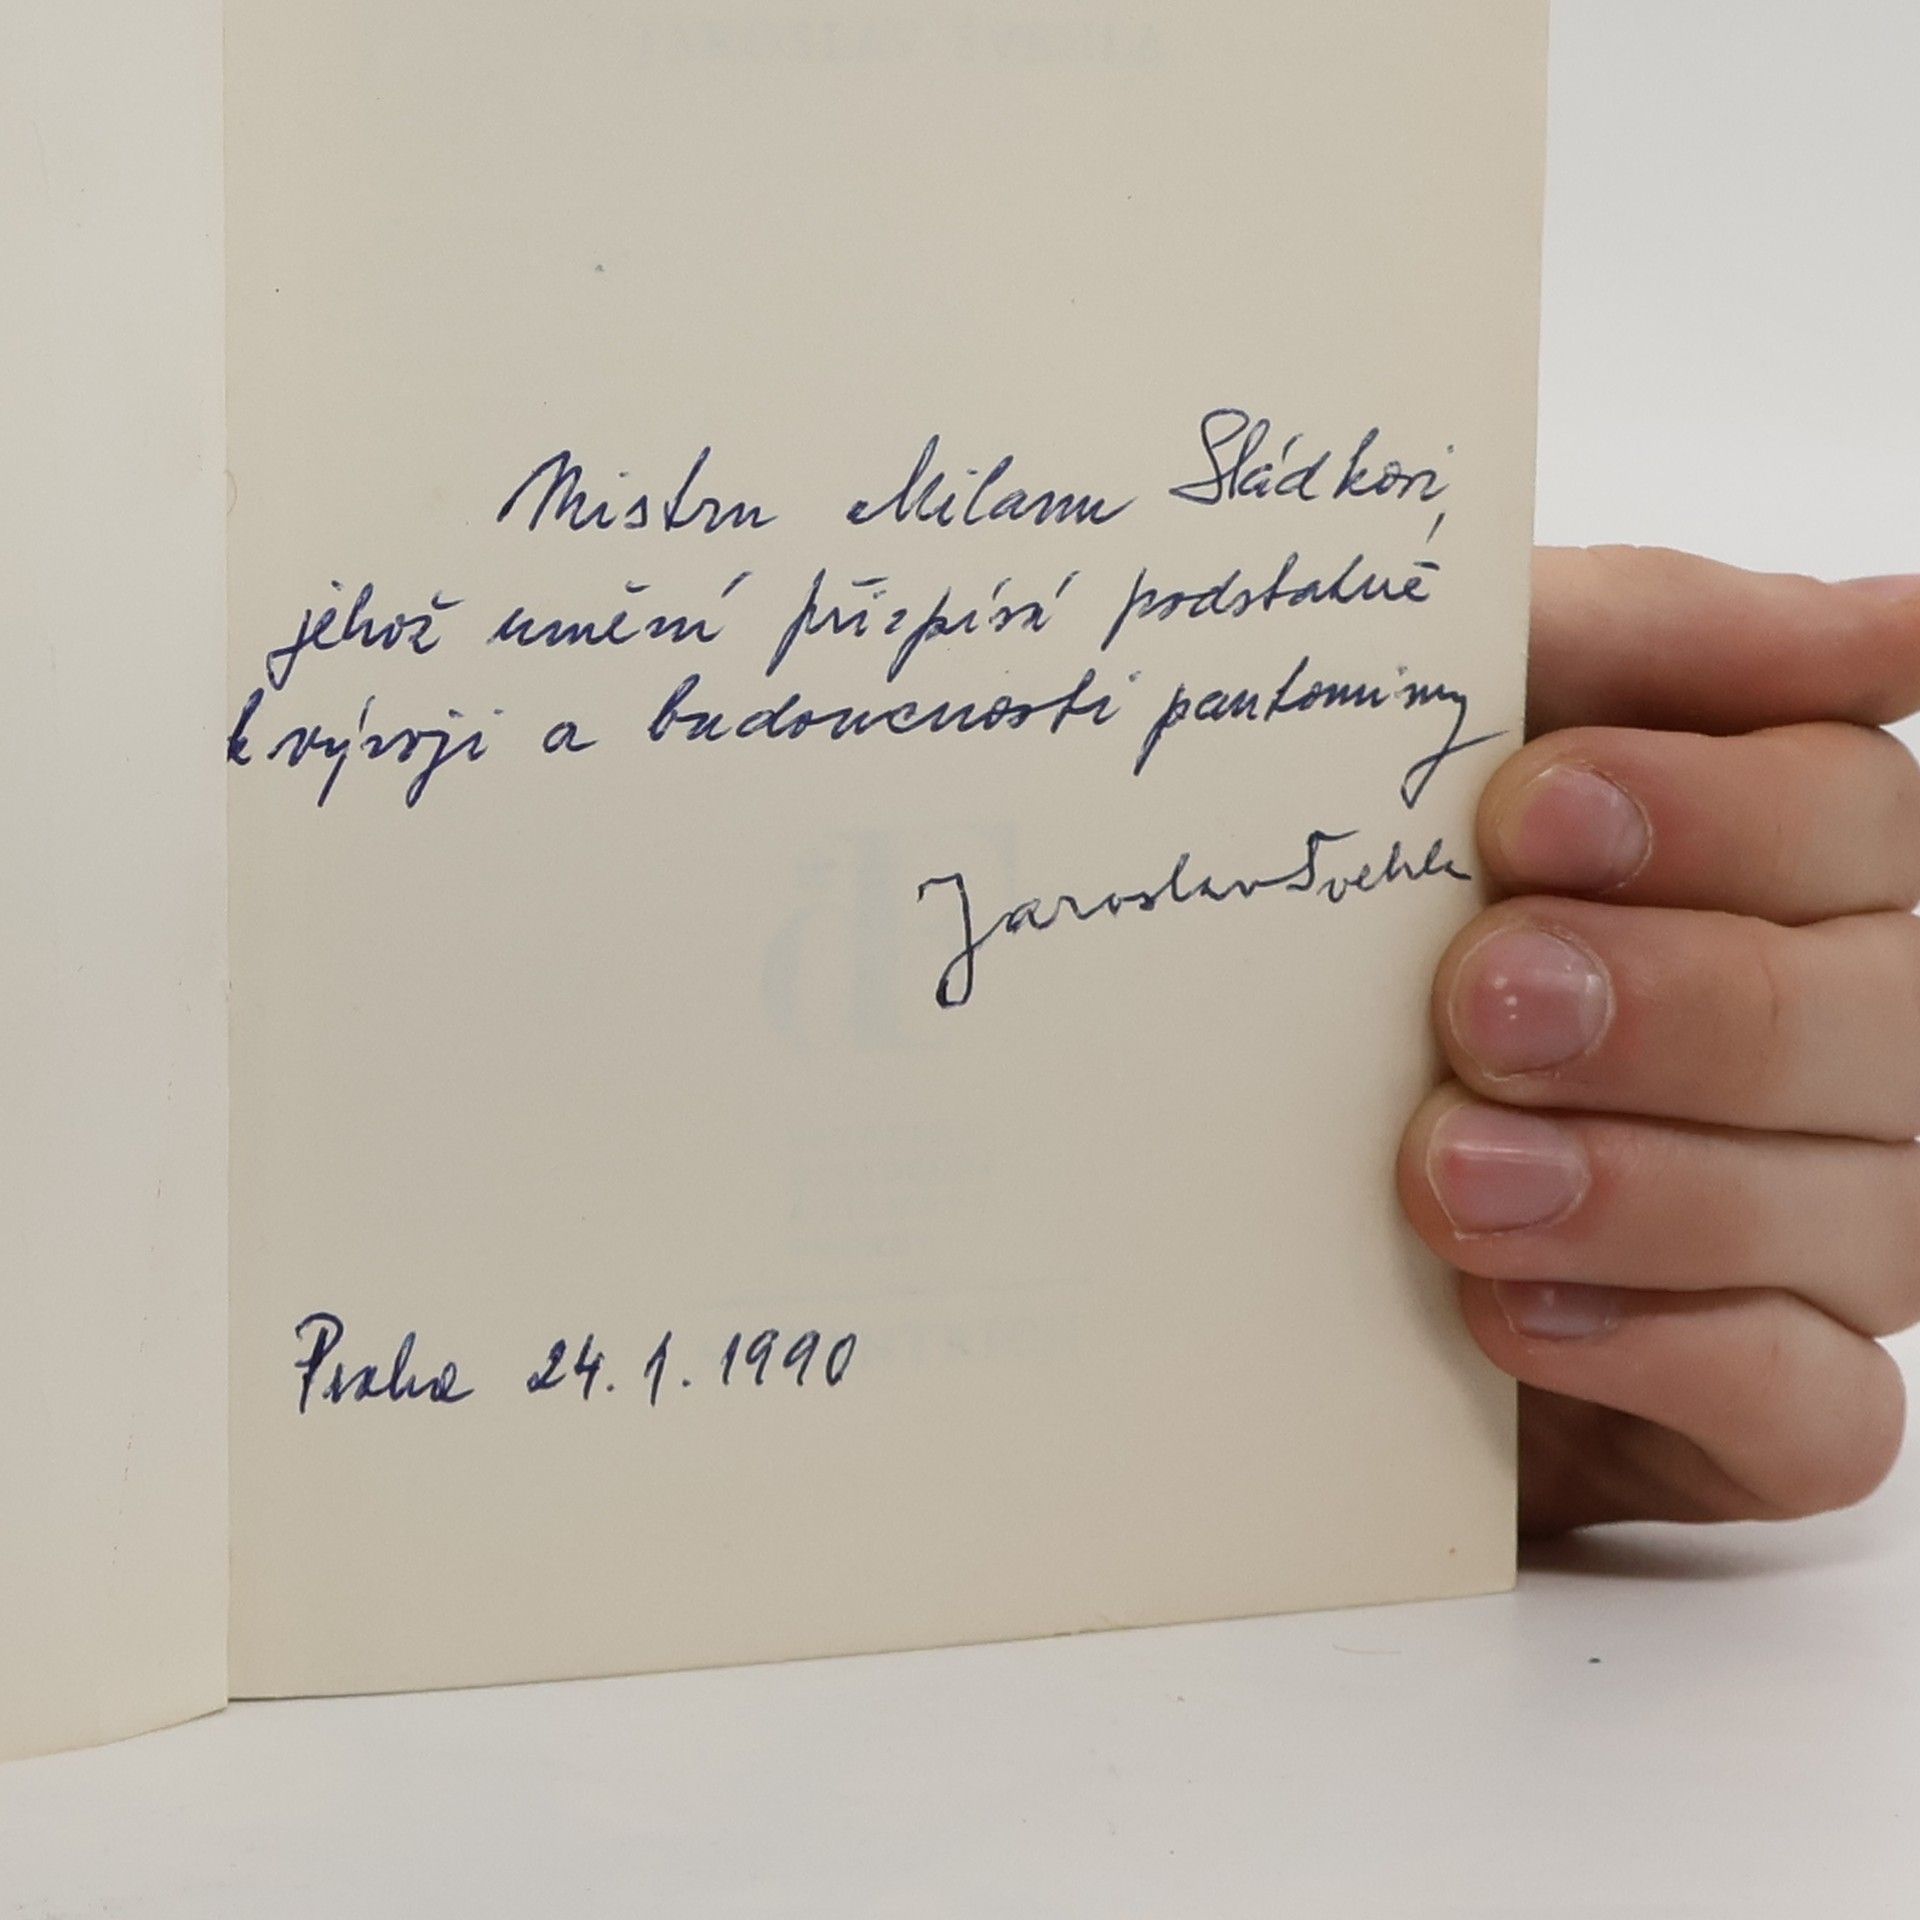 Mistru Milanu Sládkovi,
jehož umění přizpísá podstatně
k vývoji a budoucnosti pantomimy
Jaroslav Švehla
Praha 24. 1. 1990